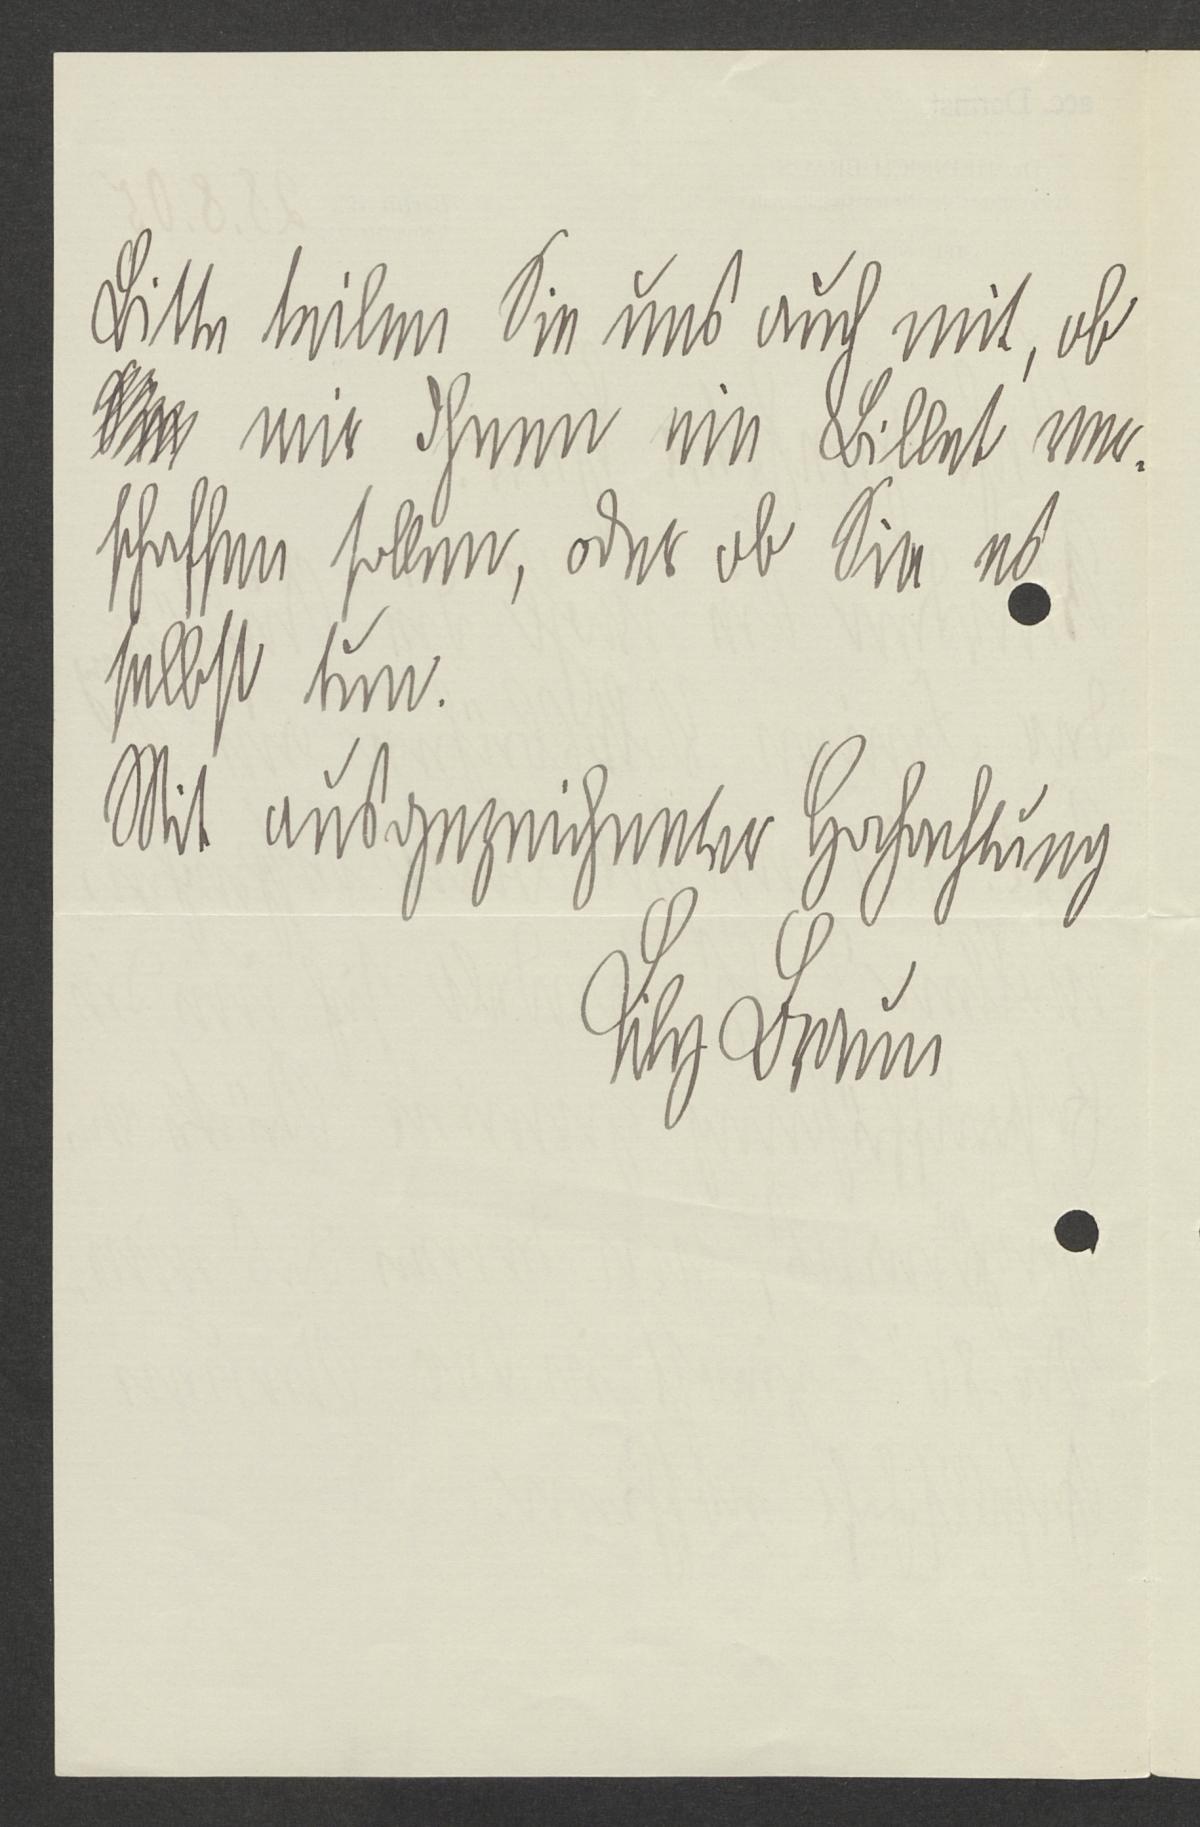 Bitte teilen Sie uns auch mit, ob
wir Ihnen ein Billet ver-
schaffen sollen, oder ob Sie es
selbst tun.
Mit ausgezeichneter Hochachtung
Lily Braun